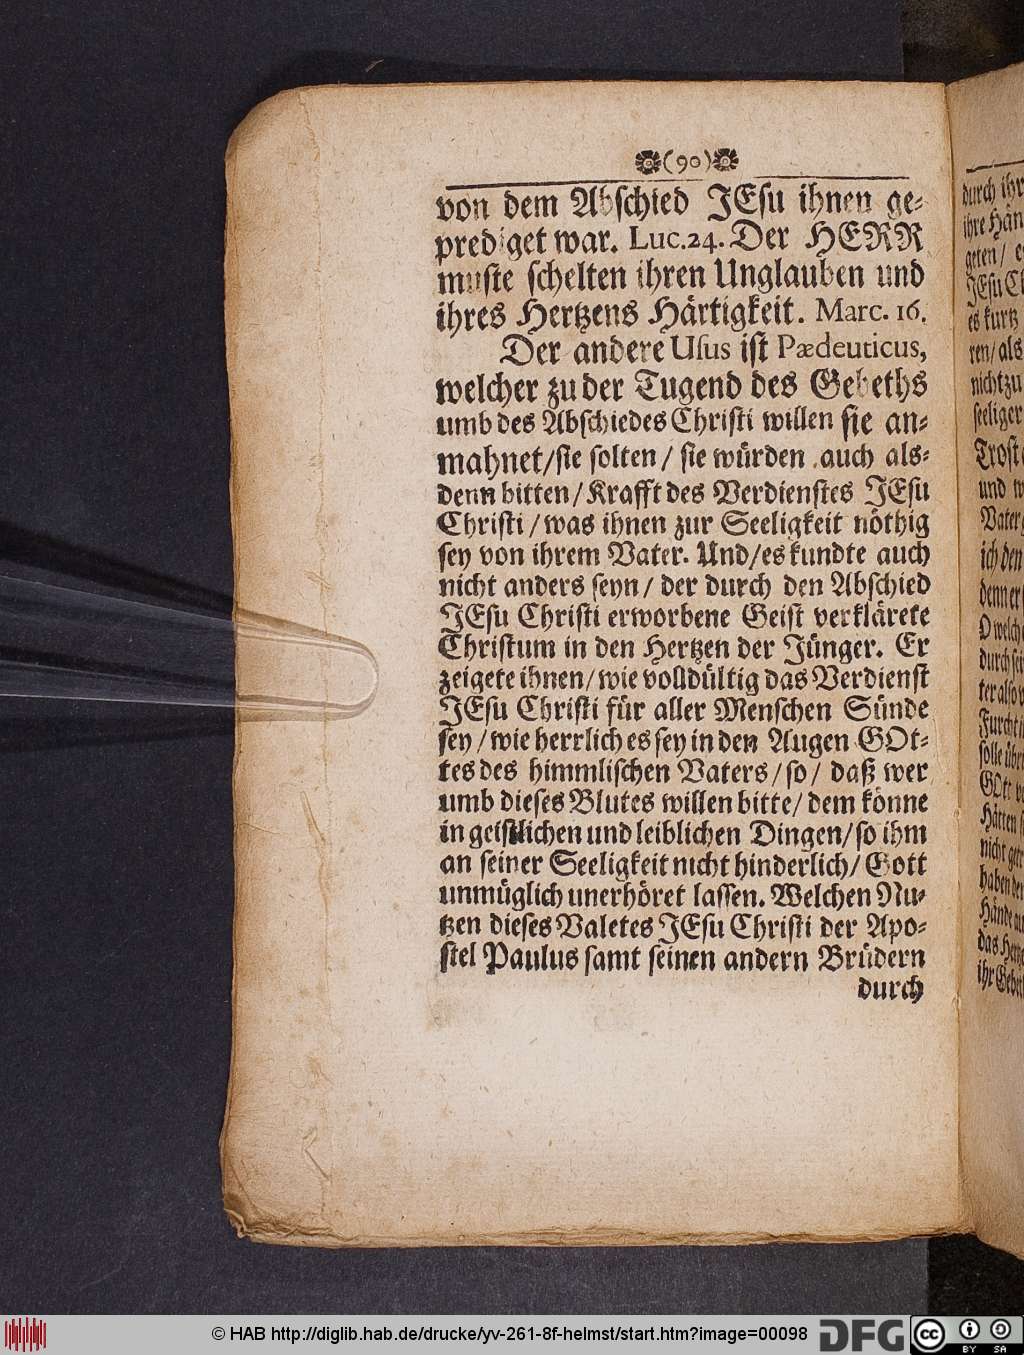 (90)
von dem Abschied JEsu ihnen ge-
prediget war. Luc.24. Der HERR
muste schelten ihren Unglauben und
ihres Hertzens Härtigkeit. Marc. 16.
Der andere Usus ist Pædeuticus,
welcher zu der Tugend des Gebeths
umb des Abschiedes Christi willen sie an-
mahnet/sie solten/ sie würden auch als-
denn bitten/Krafft des Verdienstes JEsu
Christi/was ihnen zur Seeligkeit nöthig
sey von ihrem Vater. Und/es kundte auch
nicht anders seyn/ der durch den Abschied
JEsu Christi erworbene Geist verklärete
Christum in den Hertzen der Jünger. Er
zeigete ihnen/wie volldültig das Verdienst
JEsu Christi für aller Menschen Sünde
sey/wie herrlich es sey in den Augen GOt-
tes des himmlischen Vaters/so/ daß wer
umb dieses Blutes willen bitte/ dem könne
in geistlichen und leiblichen Dingen/so ihm
an seiner Seeligkeit nicht hinderlich/Gott
unmüglich unerhöret lassen. Welchen Nu-
tzen dieses Valetes JEsu Christi der Apo-
stel Paulus samt seinen andern Brüdern
durch
durch ihr
ihre Hän
JEsu C
es kurtz
ren/als
nicht zu
seeliger
Trost
und w
Vater
ich den
denn er
O welch
Furcht
solle über
GOtt
Hätten
nicht
haben
Hände
© HAB http://diglib.hab.de/drucke/yv-261-8f-helmst/start.htm?image=00098 DFG cc BY SA